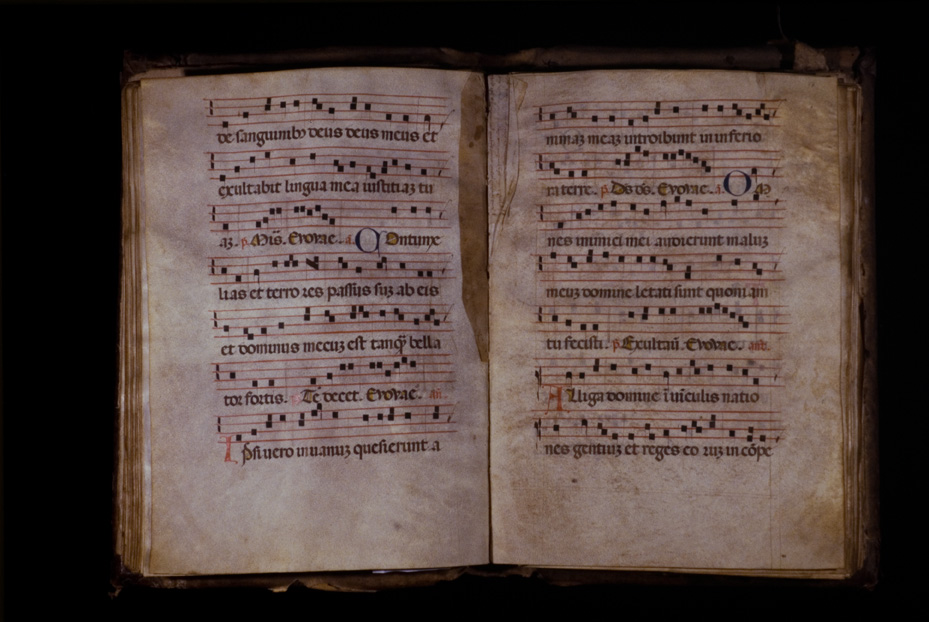 de sanguinibꝫ deus deus meus et
exultabit lingua mea iustitiaꝫ tu
aꝫ. p. Mis. Evovae. a. Contume
lias et terro res passus suꝫ ab eis
et dominus mecuꝫ est tanqꝫ bella
tor fortis. p. Te decet. Evovae. an.
Ipsi vero in vanuꝫ quesierunt a
nimaꝫ meaꝫ introibunt in inferio
ra terre. p. Ds ds. Evovae. a. Om
nes inimici mei audierunt maluꝫ
meuꝫ domine letati sunt quoni am
tu fecisti. p. Exultaū. Evovae. an.
Alliga domine ī uīculis natio
nes gentiuꝫ et reges eo ruꝫ in cōpe